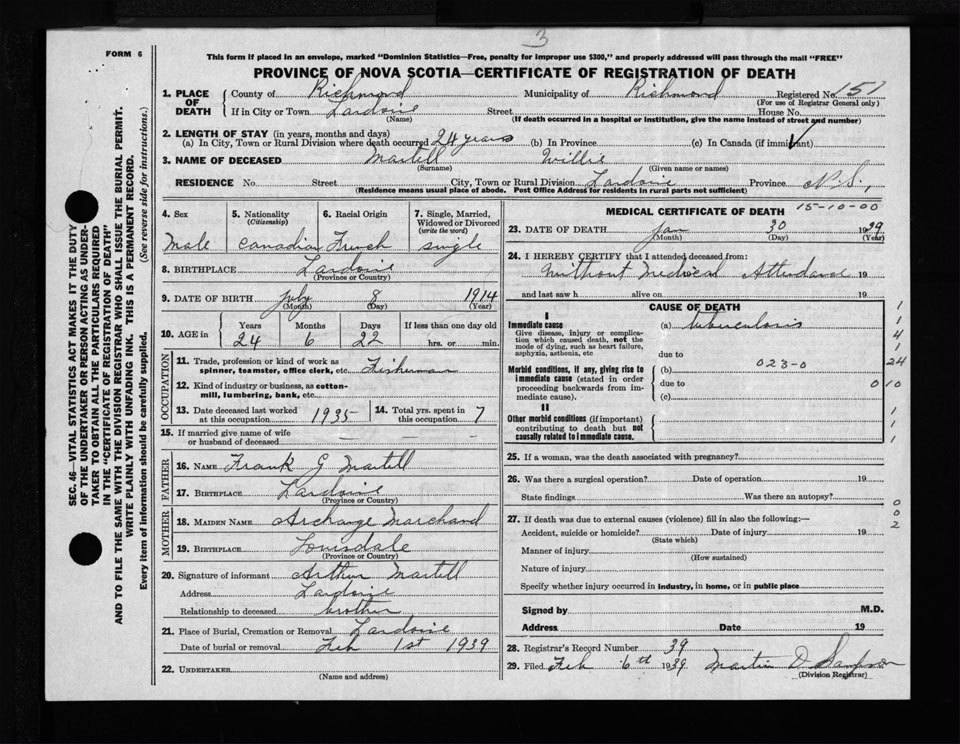 3
FORM 6
This form if placed in an envelope, marked "Dominion Statistics—Free, penalty for improper use $300," and properly addressed will pass through the mail "FREE"
PROVINCE OF NOVA SCOTIA—CERTIFICATE OF REGISTRATION OF DEATH
SEC. 46—VITAL STATISTICS ACT MAKES IT THE DUTY
OF THE UNDERTAKER OR PERSON ACTING AS UNDER-
TAKER TO OBTAIN ALL THE PARTICULARS REQUIRED
IN THE "CERTIFICATE OF REGISTRATION OF DEATH"
AND TO FILE THE SAME WITH THE DIVISION REGISTRAR WHO SHALL ISSUE THE BURIAL PERMIT.
WRITE PLAINLY WITH UNFADING INK. THIS IS A PERMANENT RECORD.
Every item of information should be carefully supplied. (See reverse side for instructions.)
1. PLACE OF DEATH County of Richmond Municipality of Richmond Registered No. 151
(For use of Registrar General only)
If in City or Town Lardoise Street House No.
(Name) (If death occurred in a hospital or institution, give the name instead of street and number)
2. LENGTH OF STAY (in years, months and days)
(a) In City, Town or Rural Division where death occurred 24 years (b) In Province (c) In Canada (if immigrant) ✓
3. NAME OF DECEASED Martell Willie
(Surname) (Given name or names)
RESIDENCE No. Street City, Town or Rural Division Lardoise Province N.S.,
(Residence means usual place of abode. Post Office Address for residents in rural parts not sufficient)
4. Sex 5. Nationality (Citizenship) 6. Racial Origin 7. Single, Married, Widowed or Divorced (write the word)
Male Canadian French single
8. BIRTHPLACE Lardoise
(Province or Country)
9. DATE OF BIRTH July 8 1914
(Month) (Day) (Year)
10. AGE in Years Months Days If less than one day old
24 6 22 hrs. or min.
OCCUPATION
11. Trade, profession or kind of work as
spinner, teamster, office clerk, etc. Fisherman
12. Kind of industry or business, as cotton-
mill, lumbering, bank, etc.
13. Date deceased last worked at this occupation 1935 14. Total yrs. spent in this occupation 7
15. If married give name of wife
or husband of deceased — — —
FATHER
16. NAME Frank G Martell
17. BIRTHPLACE Lardoise
(Province or Country)
MOTHER
18. MAIDEN NAME Archange Marchand
19. BIRTHPLACE Louisdale
(Province or Country)
20. Signature of informant Arthur Martell
Address Lardoise
Relationship to deceased brother
21. Place of Burial, Cremation or Removal Lardoise
Date of burial or removal Feb 1st 1939
22. UNDERTAKER
(Name and address)
MEDICAL CERTIFICATE OF DEATH 15-10-00
23. DATE OF DEATH Jan 30 1939
(Month) (Day) (Year)
24. I HEREBY CERTIFY that I attended deceased from:
Without Medical Attendance 19
and last saw h alive on 19
CAUSE OF DEATH
I
Immediate cause (a) tuberculosis
Give disease, injury or complica-
tion which caused death, not the
mode of dying, such as heart failure,
asphyxia, asthenia, etc
due to
Morbid conditions, if any, giving rise to
immediate cause (stated in order
proceeding backwards from im-
mediate cause).
(b) 023-0
due to
(c)
II
Other morbid conditions (if important)
contributing to death but not
causally related to immediate cause.
1
1
4
1
24
0 10
1
1
1
25. If a woman, was the death associated with pregnancy?
26. Was there a surgical operation? Date of operation 19
State findings Was there an autopsy?
0
0
2
27. If death was due to external causes (violence) fill in also the following:—
Accident, suicide or homicide? Date of injury 19
(State which)
Manner of injury
(How sustained)
Nature of injury
Specify whether injury occurred in industry, in home, or in public place
Signed by M.D.
Address Date 19
28. Registrar's Record Number 39
29. Filed Feb 6th 1939 Martin D Sampson
(Division Registrar)